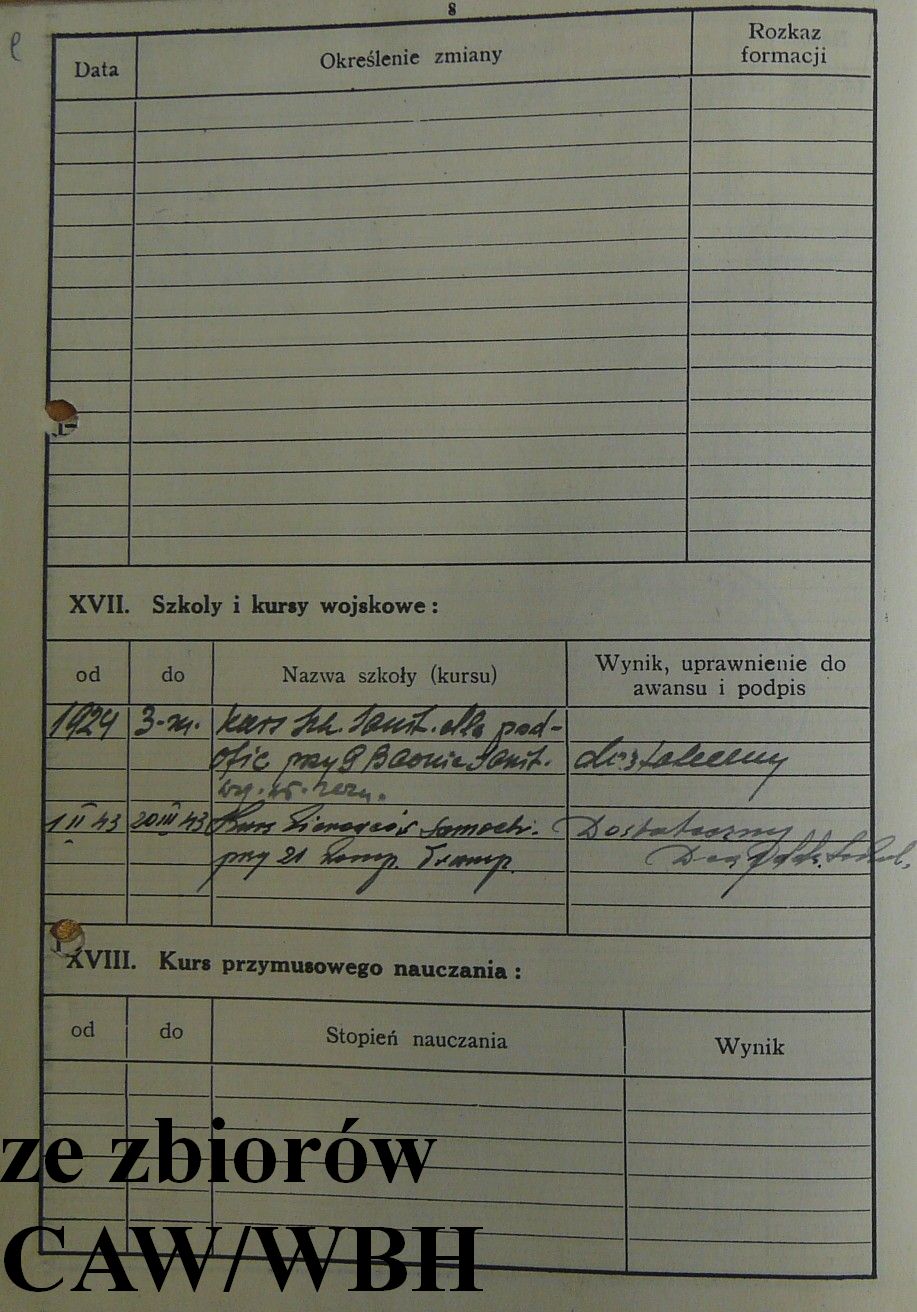 8
Data Określenie zmiany Rozkaz formacji
XVII. Szkoly i kursy wojskowe :
od do Nazwa szkoły (kursu) Wynik, uprawnienie do awansu i podpis
1924 3-m. kurs sanit. dla pod-
ofic przy 9 Baonie Sanit. dostateczny
1 II 43 20 III 43 Kurs kierowców samoch. Dostateczny
przy 21 komp. Transp.
XVIII. Kurs przymusowego nauczania :
od do Stopień nauczania Wynik
ze zbiorów
CAW/WBH